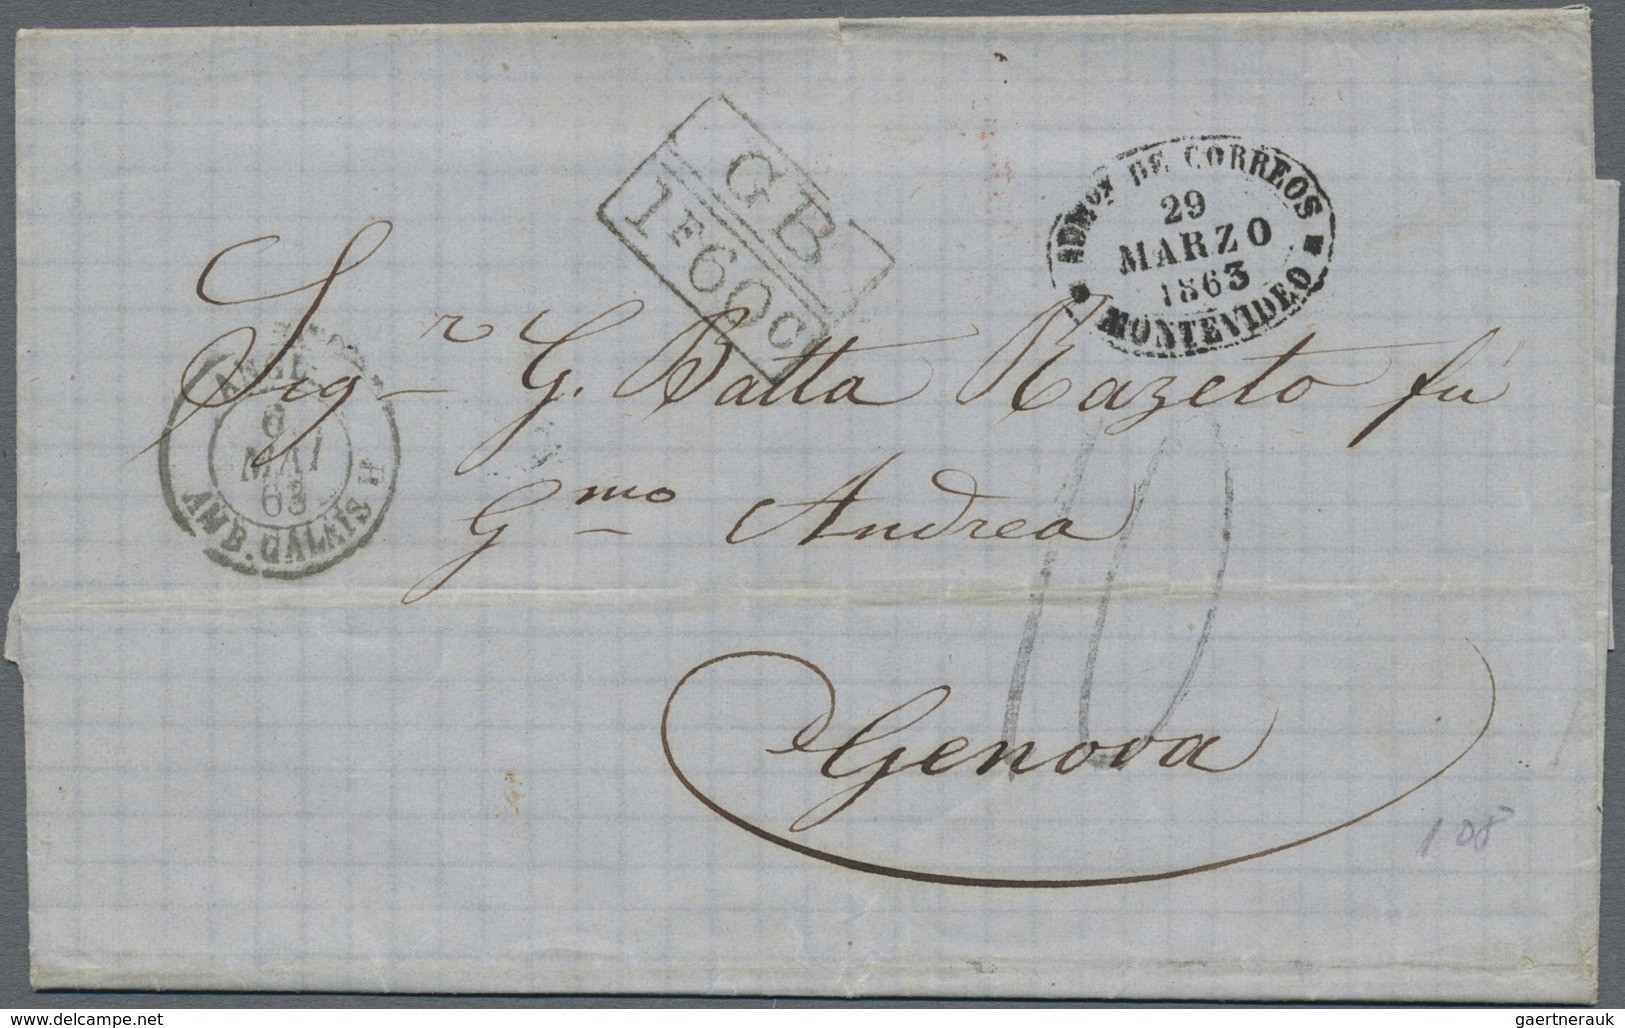 GB
1F60C
ADMON DE CORREOS
29
MARZO
1863
MONTEVIDEO
ANGL.
6
MAI
63
AMB. CALAIS H
Sigr G. Batta Razeto fu
Gmo Andrea
10
Genova
108
www.delcampe.net
gaertnerauk